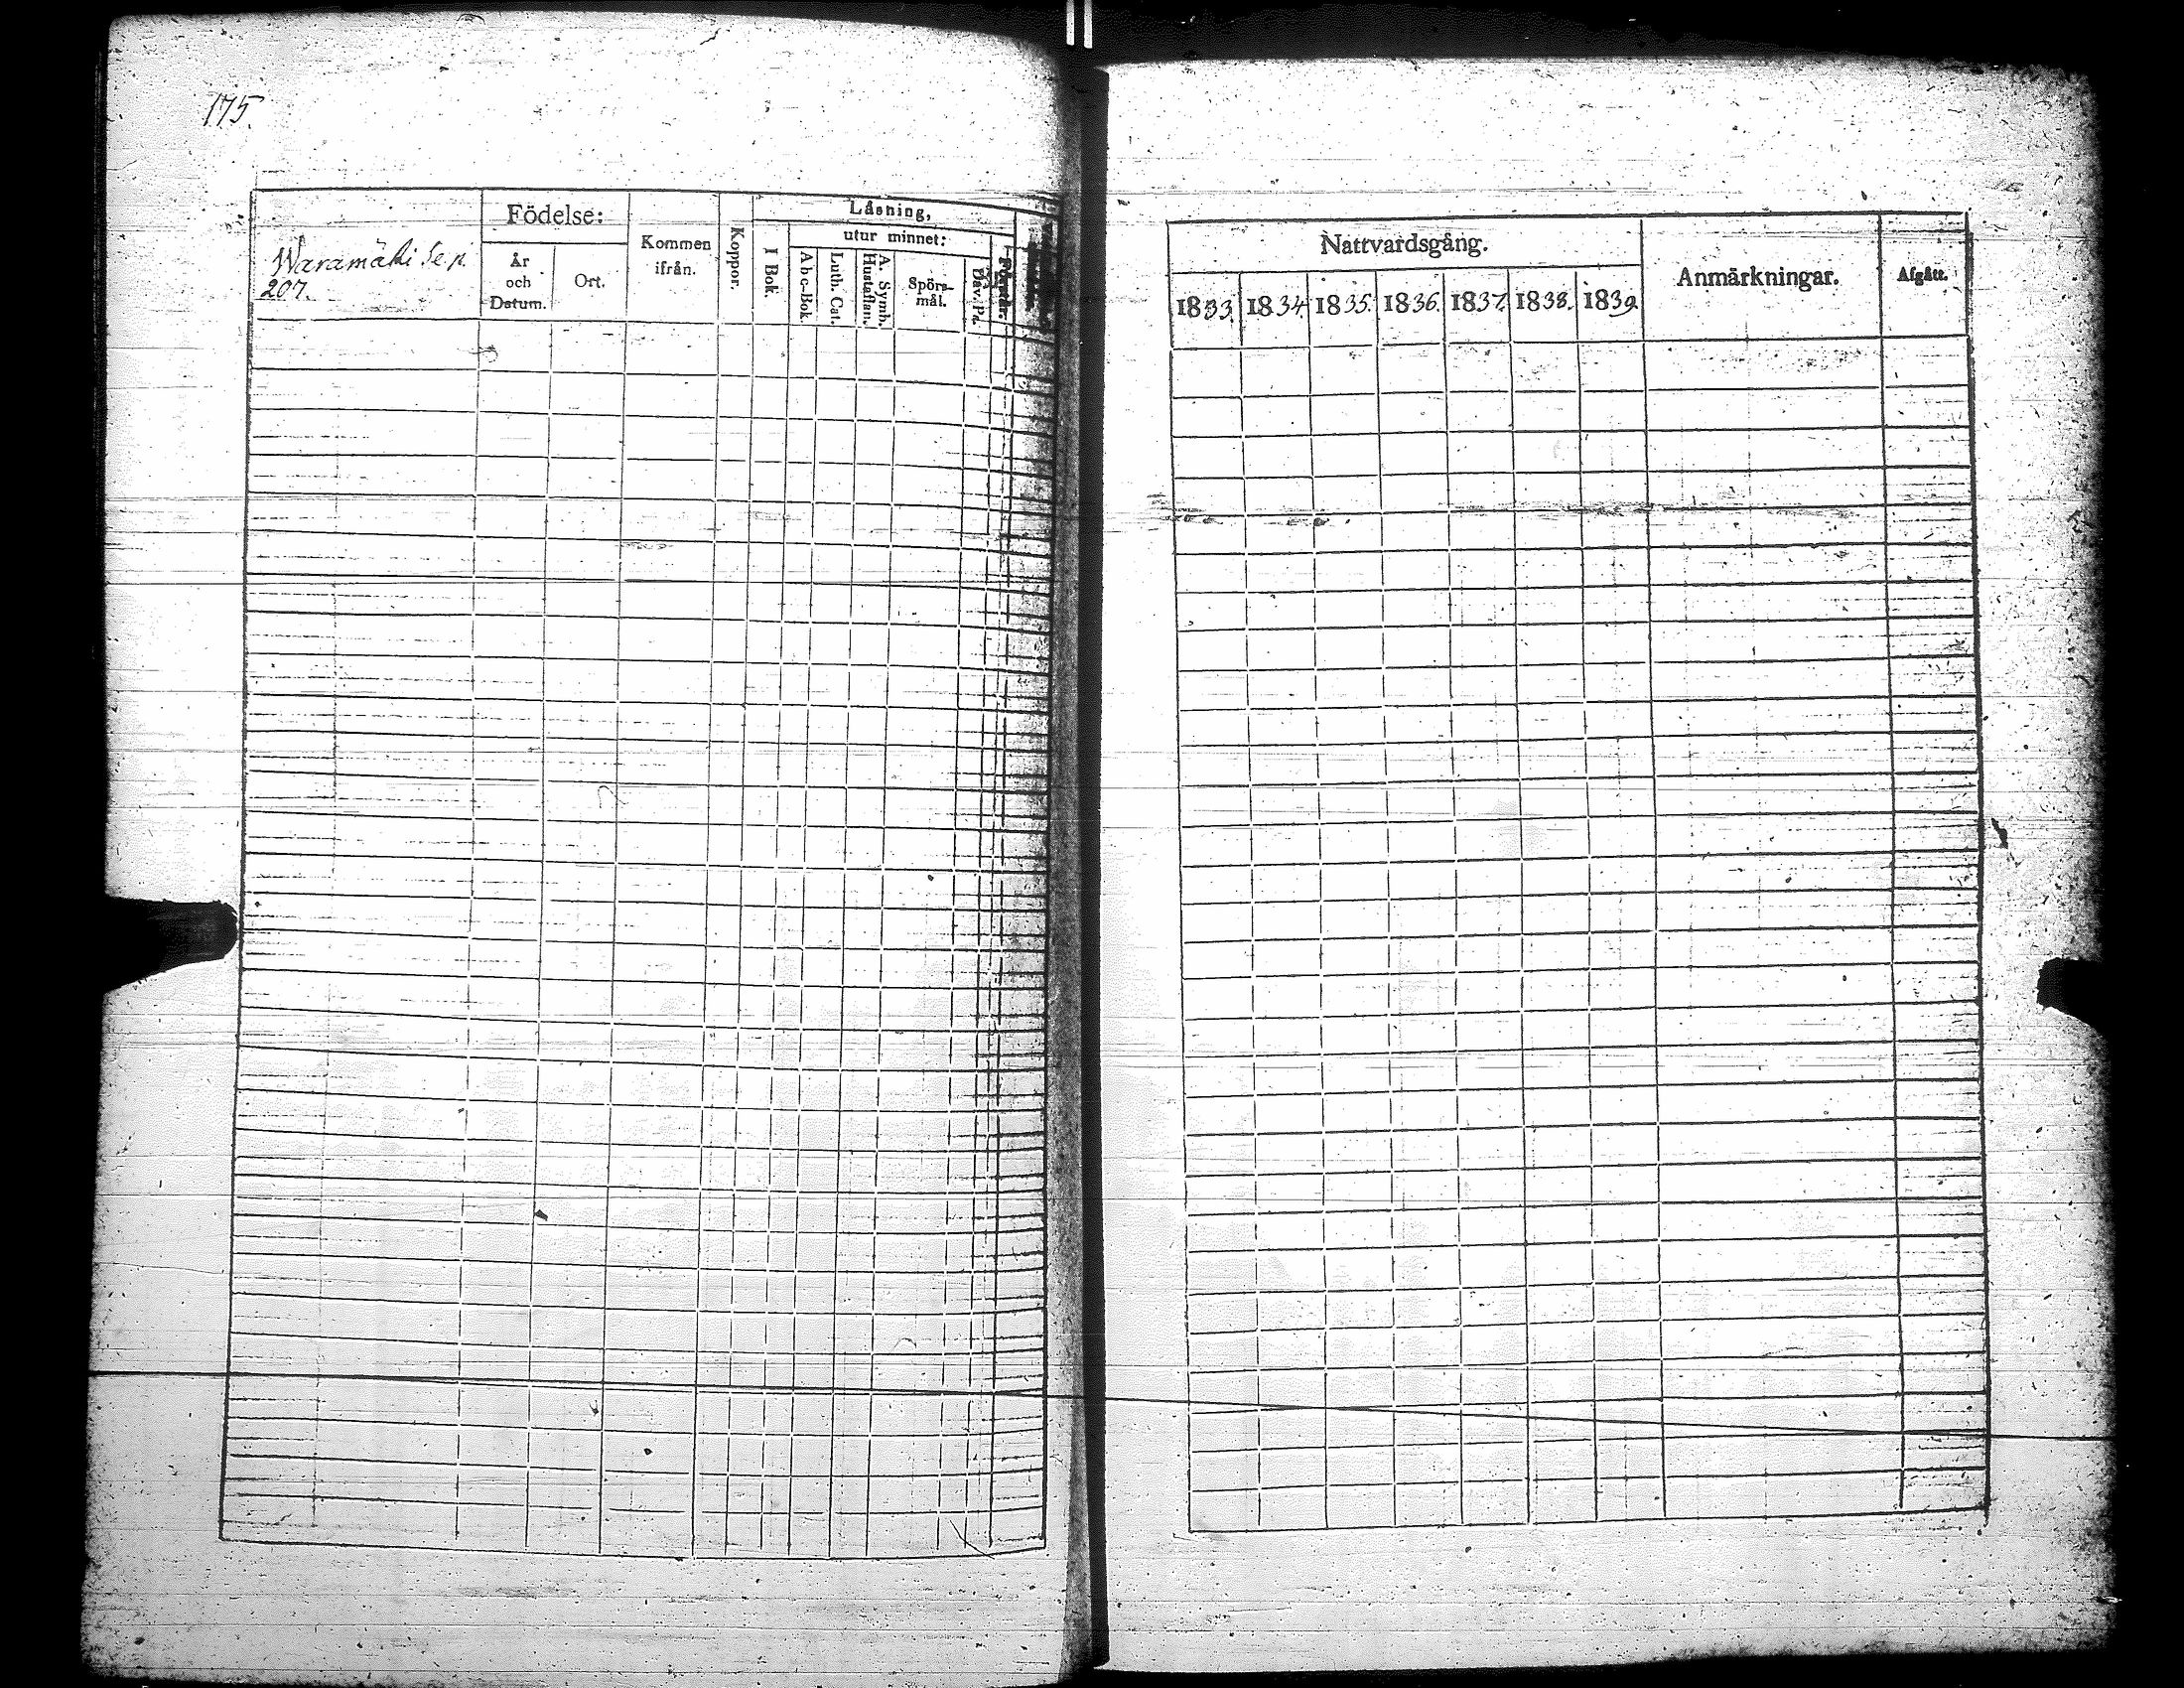 175.
Waramäki
207.
Födelse:
År
och
Datum.
Ort.
Kommen
ifrån.
Koppor.
Läsning,
I Bok.
utur minnet:
A b c-Bok.
Luth. Cat.
A. Symb.
Hustaflan.
Spörs-
mål.
Dav. Ps.
Nattvardsgång.
1833. 1834. 1835. 1836. 1837. 1838. 1839.
Anmärkningar.
Afgått.